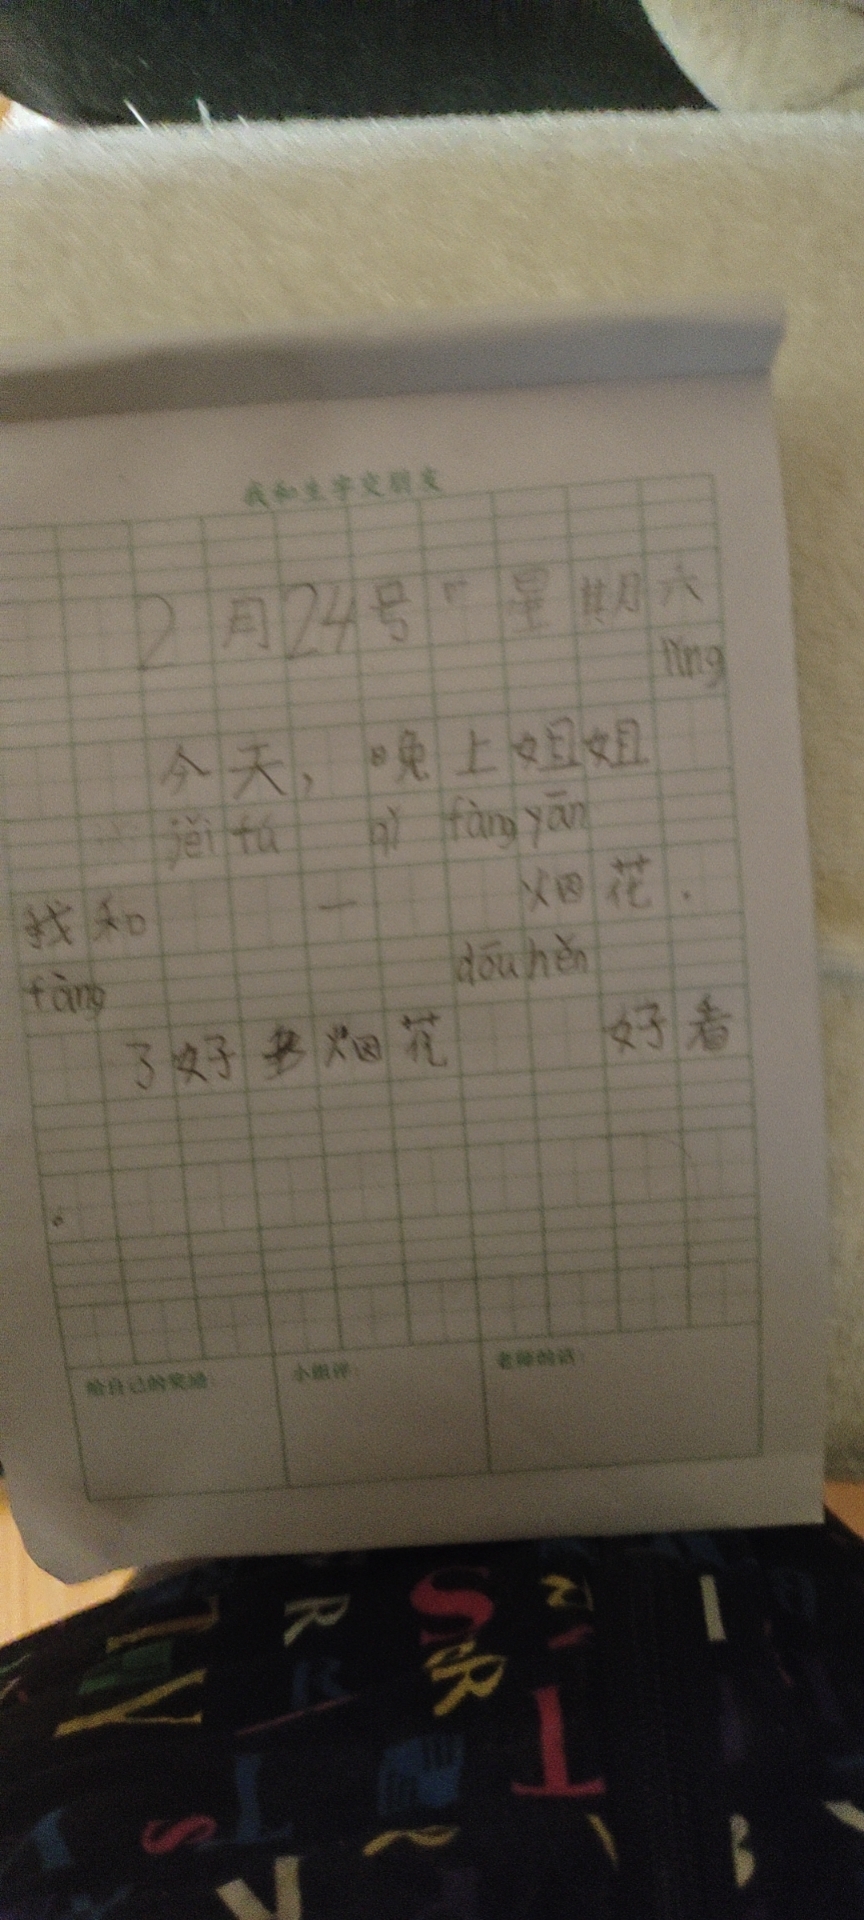 我和生字交朋友
2月24号 星期六
lǐng
今天，晚上姐姐
jěi fu qǐ fàng yān
我和 一 烟花.
fàng dōu hěn
了好多烟花 好看
。
给自己的奖励：
小组评：
老师的话：
S
R
T
V